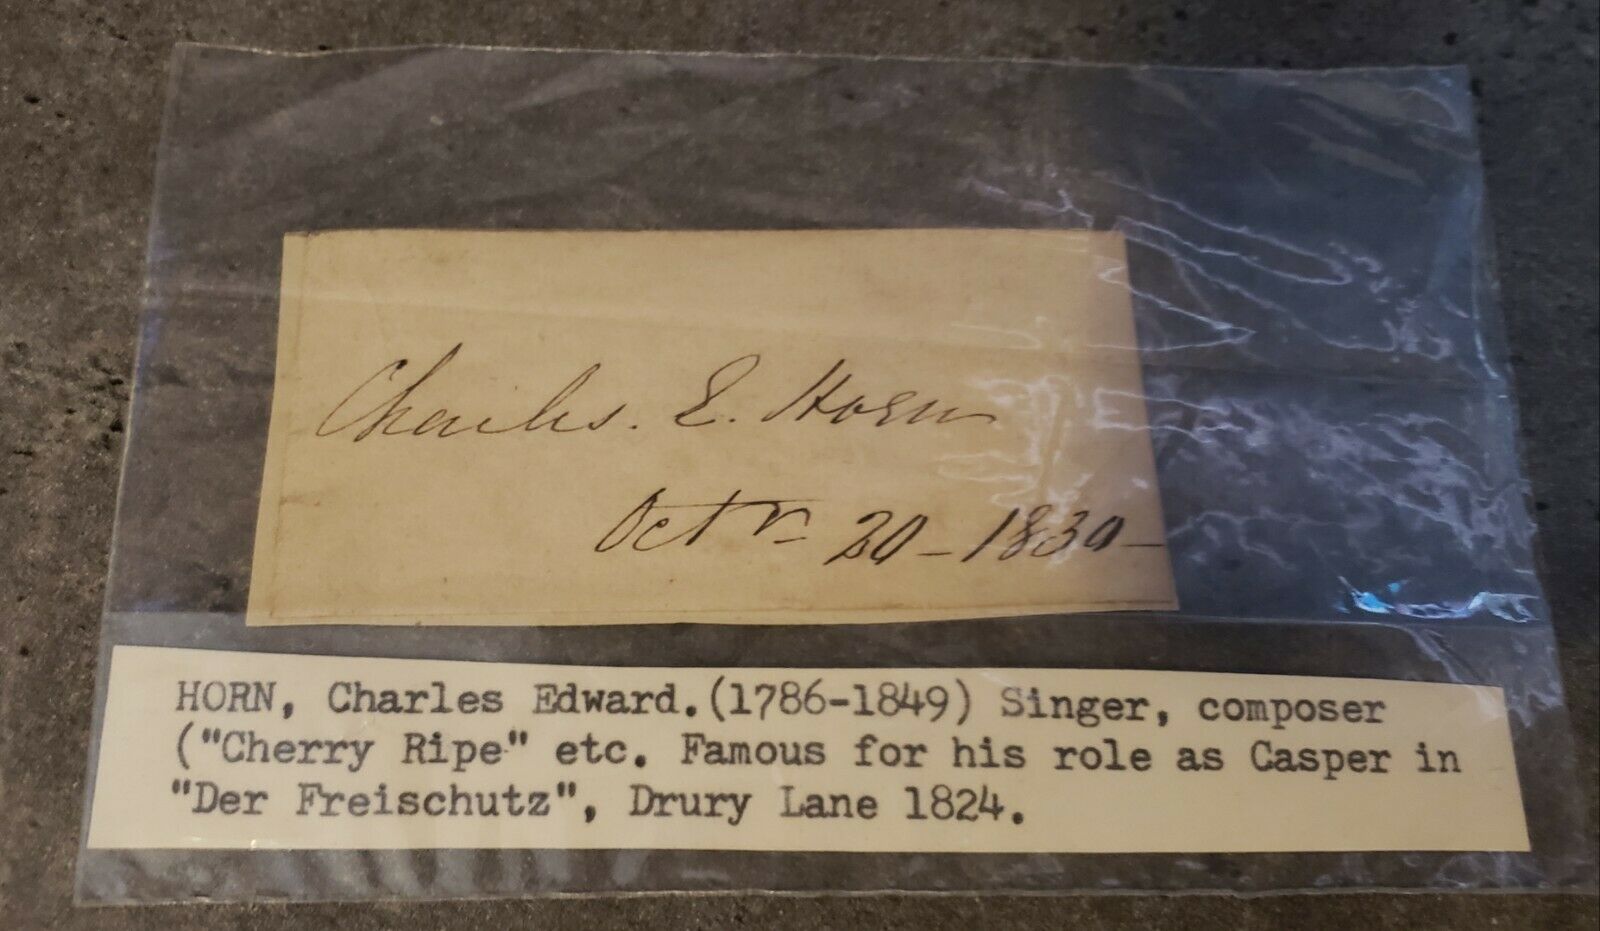 Charles. E. Horn
Octr 20 - 1830 -
HORN, Charles Edward.(1786-1849) Singer, composer
("Cherry Ripe" etc. Famous for his role as Casper in
"Der Freischutz", Drury Lane 1824.